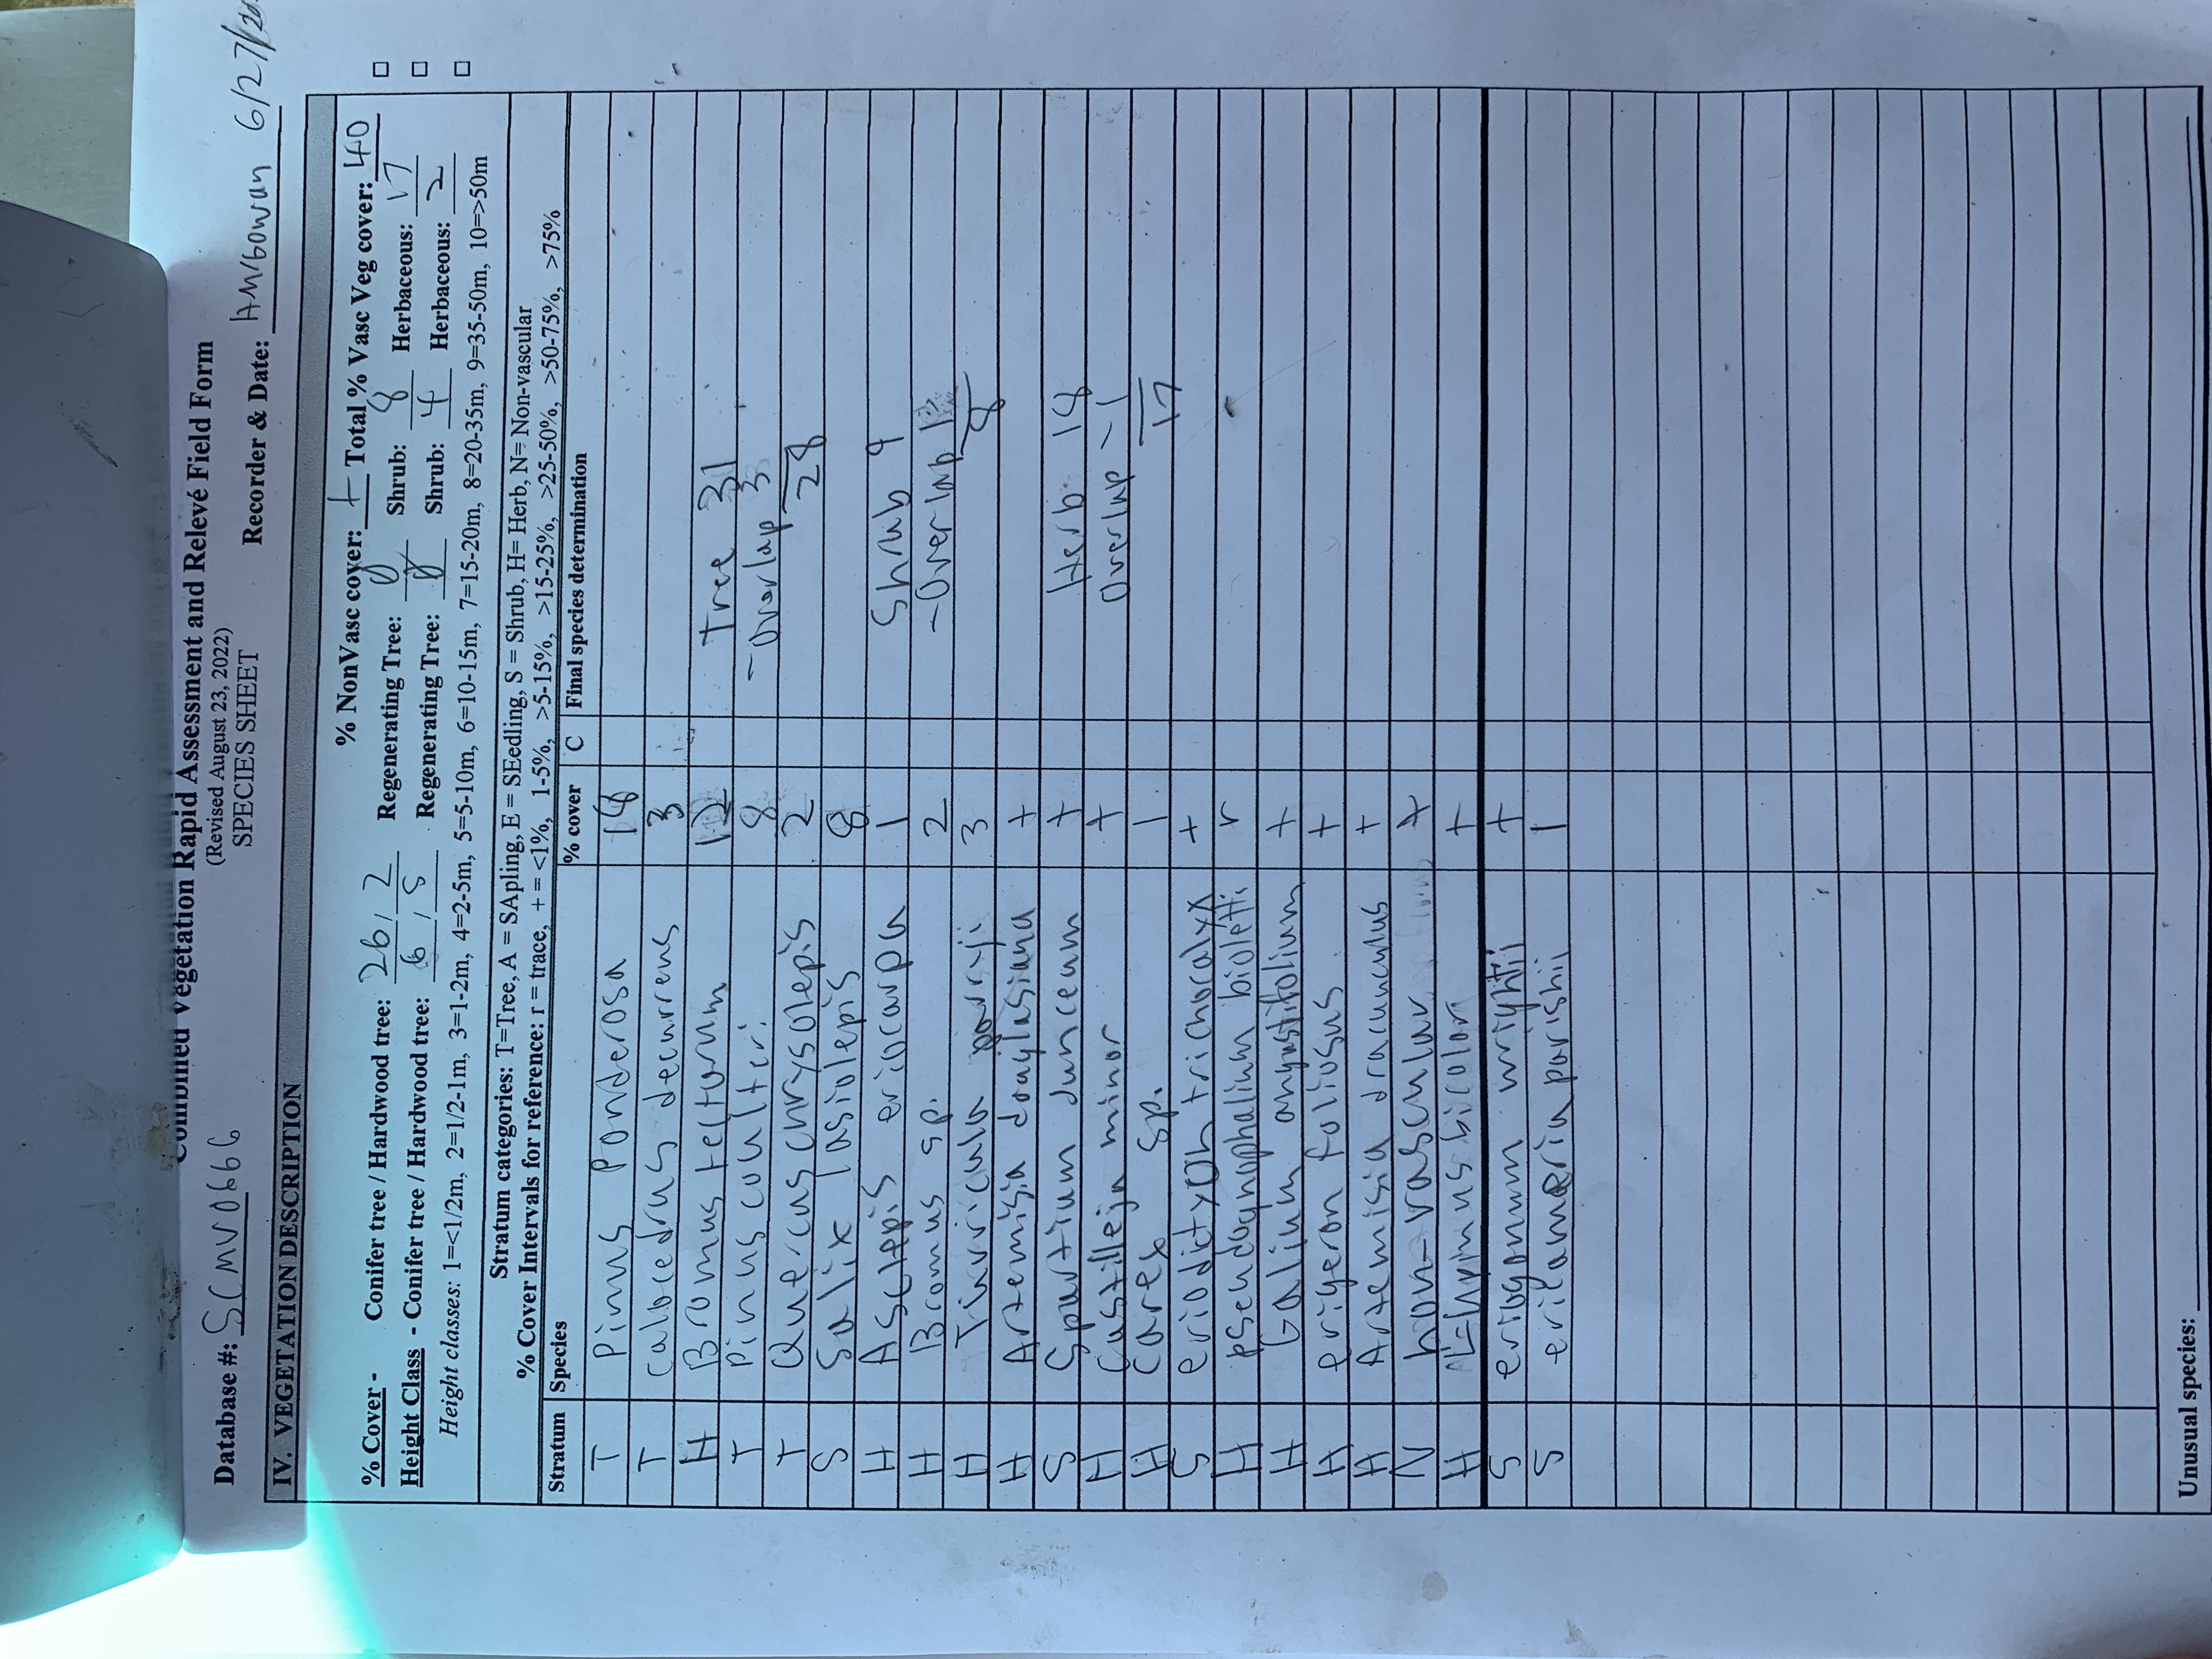 Combined Vegetation Rapid Assessment and Relevé Field Form
(Revised August 23, 2022)
SPECIES SHEET
Database #: SCMV0666 Recorder & Date: 6/27/20
IV. VEGETATION DESCRIPTION
% NonVasc cover: + Total % Vasc Veg cover: 40
% Cover - Conifer tree / Hardwood tree: 26 / 2 Regenerating Tree: 0 Shrub: 8 Herbaceous: 17
Height Class - Conifer tree / Hardwood tree: 6 / 5 Regenerating Tree: 0 Shrub: 4 Herbaceous: 2
Height classes: 1=<1/2m, 2=1/2-1m, 3=1-2m, 4=2-5m, 5=5-10m, 6=10-15m, 7=15-20m, 8=20-35m, 9=35-50m, 10=>50m
Stratum categories: T=Tree, A = SApling, E = SEedling, S = Shrub, H= Herb, N= Non-vascular
% Cover Intervals for reference: r = trace, + = <1%, 1-5%, >5-15%, >15-25%, >25-50%, >50-75%, >75%
Stratum Species % cover C Final species determination
T Pinus Ponderosa 18
T calocedrus decurrens 3
H Bromus tectorum 12 Tree 31
T Pinus coulteri 8 -Overlap 3
T Quercus chrysolepis 2 28
S Salix lasiolepis 8
H Asclepis eriocarpa 1 Shrub 9
H Bromus sp. 2 -Overlap 1
H Tauricula parryi 3 8
H Artemisia douglasiana +
S Spartium junceum + Herb 18
H Castilleja minor + Overlap -1
H carex sp. 1 17
S eriodictyon trichocalyx +
H pseudognaphalium bioletti r
H Galium angustifolium +
H erigeron foliosus +
H Artemisia dracunculus +
N non-vascular +
H bicolor +
S eriogonum wrightii +
S ericameria parishii 1
Unusual species: